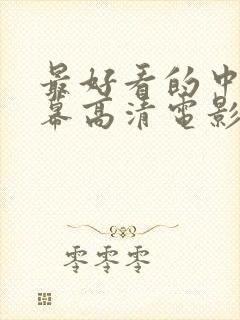 最好看的中
幕高清电影
零零零